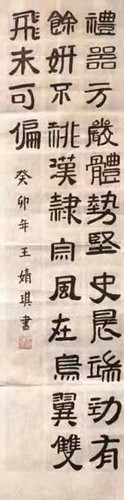 禮器方嚴體勢堅史晨端勁有
餘妍不祧漢隸宗風在鳥翼雙
飛未可偏
癸卯年王婧琪書